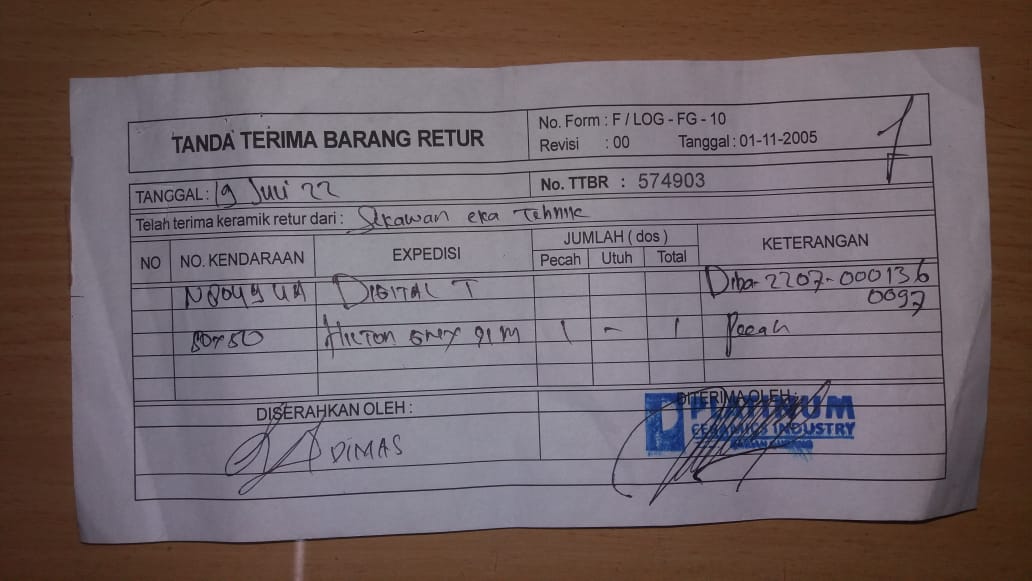 TANDA TERIMA BARANG RETUR
No. Form : F / LOG - FG - 10
Revisi : 00 Tanggal : 01-11-2005
TANGGAL : 19 Juli 22
No. TTBR : 574903
Telah terima keramik retur dari : Sekawan eka Tehnik
NO NO. KENDARAAN EXPEDISI JUMLAH ( dos ) KETERANGAN
Pecah Utuh Total
DIGITAL T 2207-000136
0097
50x50 HILTON GREY 1 - 1 Pecah
DISERAHKAN OLEH : DITERIMA OLEH :
DIMAS
PLATINUM
CERAMICS INDUSTRY